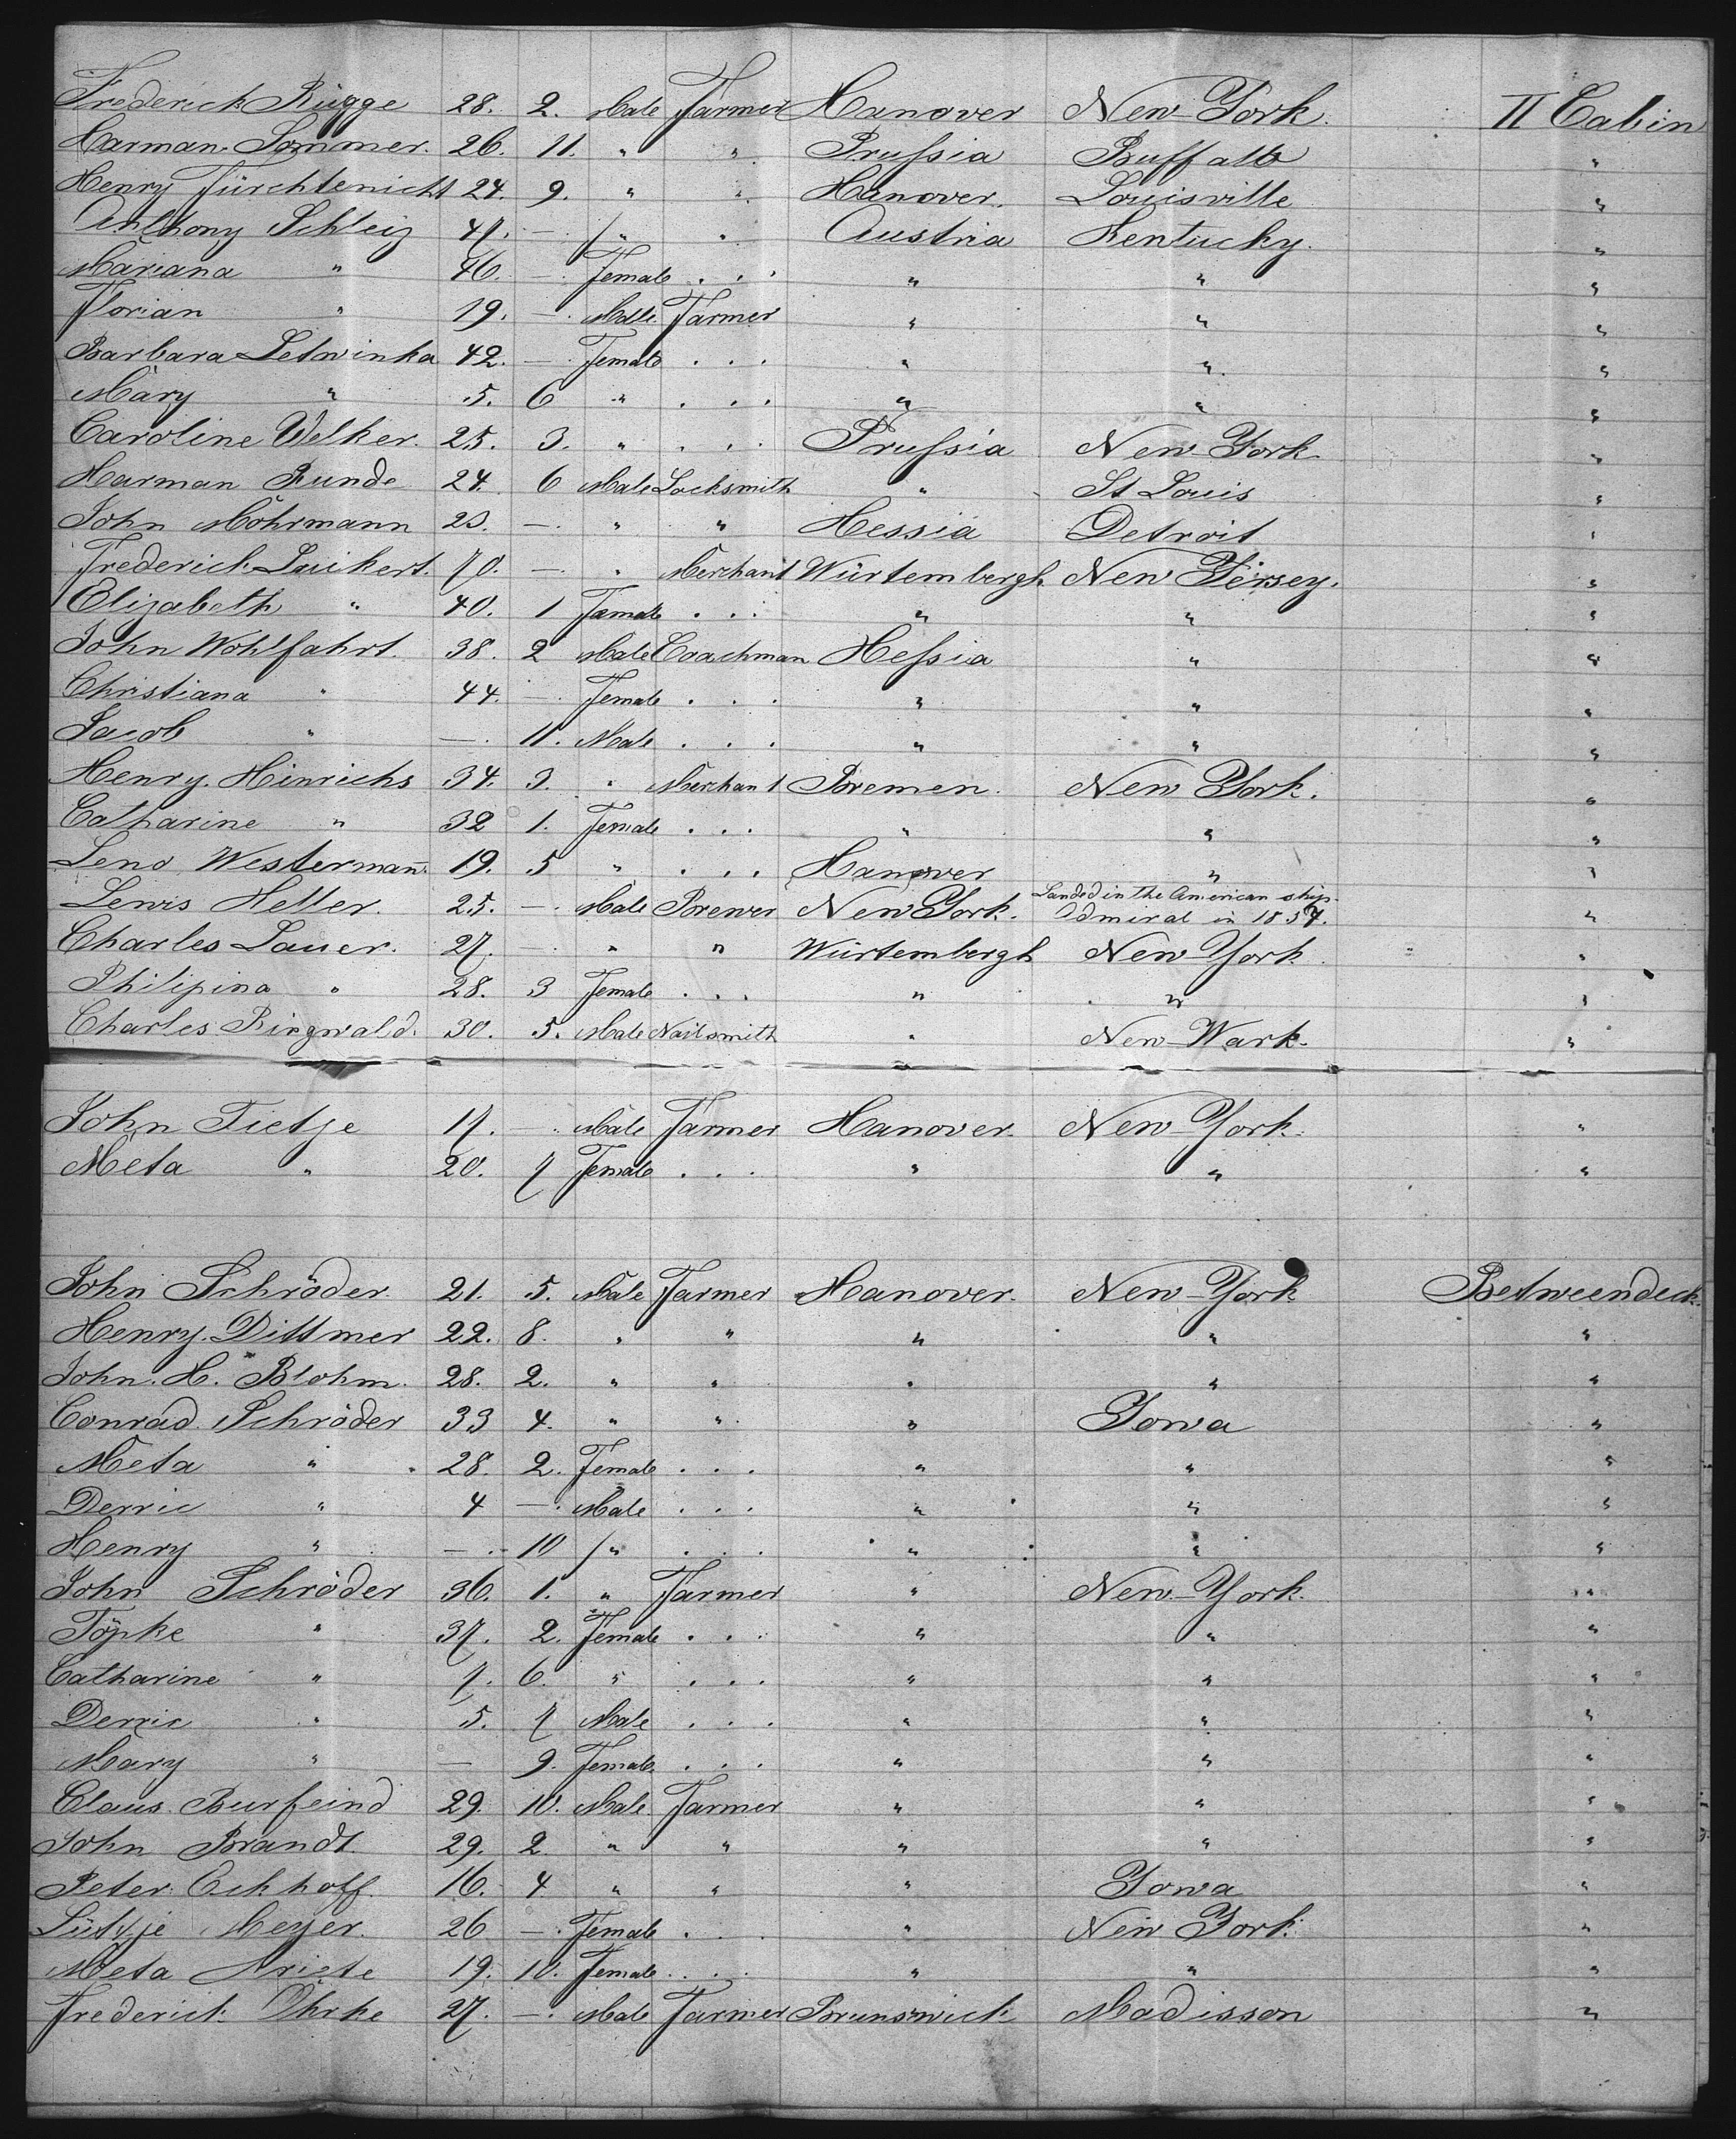 Frederick Rügge 28. 2. Male Farmer Hanover New-York. II Cabin
Harman Sommer. 26. 11. " " Prussia Buffalo "
Henry Fürchtenicht 24. 9. " " Hanover. Louisville "
Anthony Schleig 47. — " " Austria Kentucky. "
Mariana " 46. — Female . . . " " "
Florian " 19. — Male Farmer " " "
Barbara Letwinka 42. — Female . . . " " "
Mary " 5. 6 " . . . " " "
Caroline Welker. 25. 3. " . . . Prussia New York. "
Harman Runde 24. 6 Male Locksmith " St Louis "
John Möhrmann 25. — " " Hessia Detroit "
Frederick Luickert. 70. — " Merchant Würtembergh New Yersey. "
Elizabeth " 40. 1 Female . . . " " "
John Wohlfahrt. 38. 2 Male Coachman Hessia " "
Christiana " 44. — Female . . . " " "
Jacob " — 11. Male . . . " " "
Henry. Hinrichs 34. 3. " Merchant Bremen. New York. "
Catharine " 32 1. Female . . . " " "
Leno Westermann 19. 5 " . . . Hanover " "
Lewis Heller. 25. — Male Brewer New York. Landed in the American ship. Admiral in 1857. "
Charles Lauer. 27. — " " Würtembergh New York. "
Philipina " 28. 3 Female . . . " " "
Charles Ringwald. 30. 5. Male Nailsmith " New-Wark. "
John Tietje 17. — Male Farmer Hanover. New-York. "
Meta " 20. 7 Female . . . " " "
John Schröder. 21. 5. Male Farmer Hanover. New-York Betweendeck.
Henry. Dittmer 22. 8. " " " " "
John. H. Blohm. 28. 2. " " " " "
Conrad. Schröder 33 4. " " " Iowa "
Meta " 28. 2. Female . . . " " "
Derric " 4 — Male . . . " " "
Henry " — 10 " . . . " " "
John Schröder 36. 1. " Farmer " New-York. "
Töpke " 37. 2. Female . . . " " "
Catharine " 7. 6. " . . . " " "
Derric " 5. 7 Male . . . " " "
Mary " — 9. Female . . . " " "
Claus. Burfeind 29. 10. Male. Farmer " " "
John Brandt. 29. 2. " " " " "
Peter. Eckhoff. 16. 4 " " " Iowa "
Lütje Meyer. 26 — Female . . . " New York. "
Meta 19. 10. Female . . . " " "
Frederick Öhrke 27. — Male Farmer Brunswick Madisson "